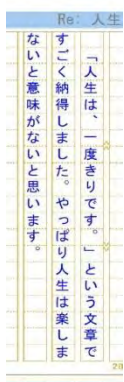 Re: 人生
「人生は、一度きりです。」という文章で
すごく納得しました。やっぱり人生は楽しま
ないと意味がないと思います。
20